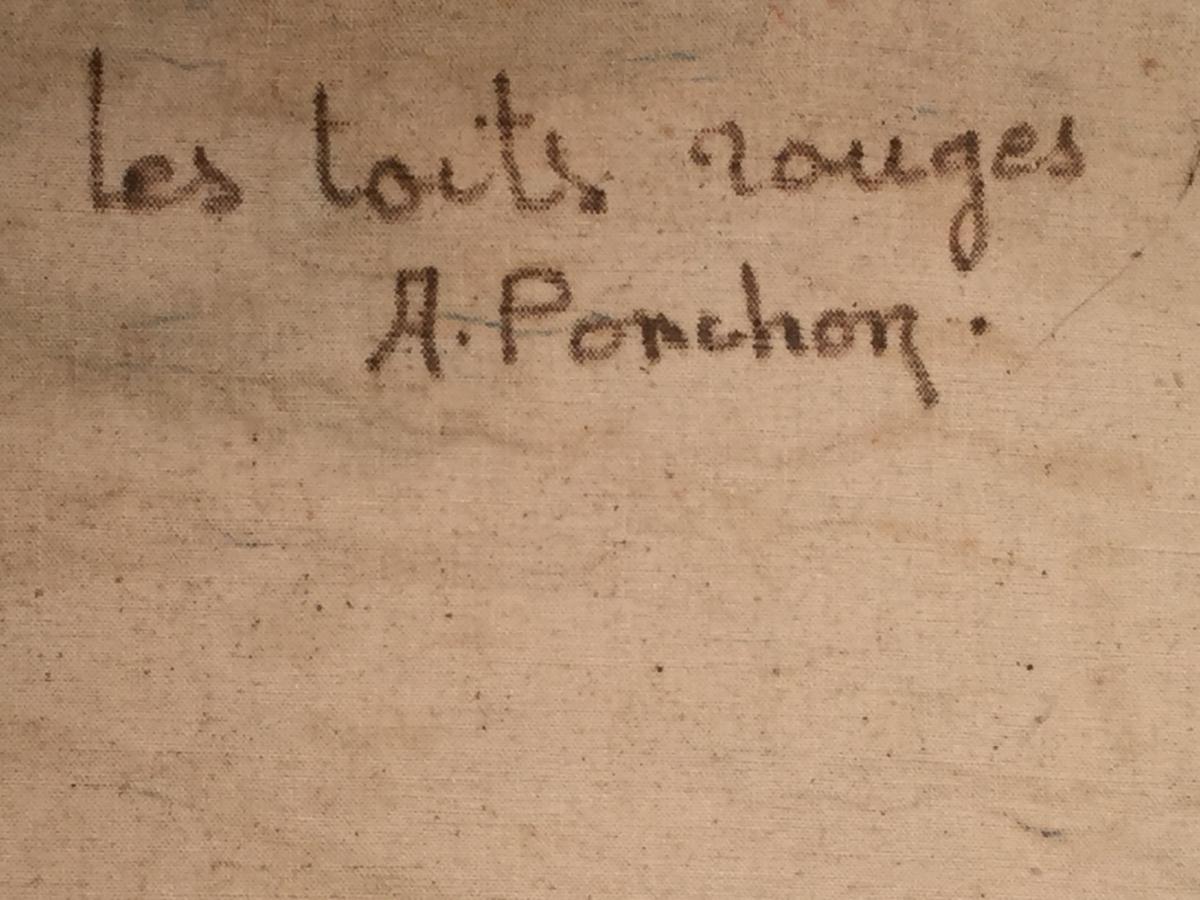 Les toits rouges
A. Ponchon.